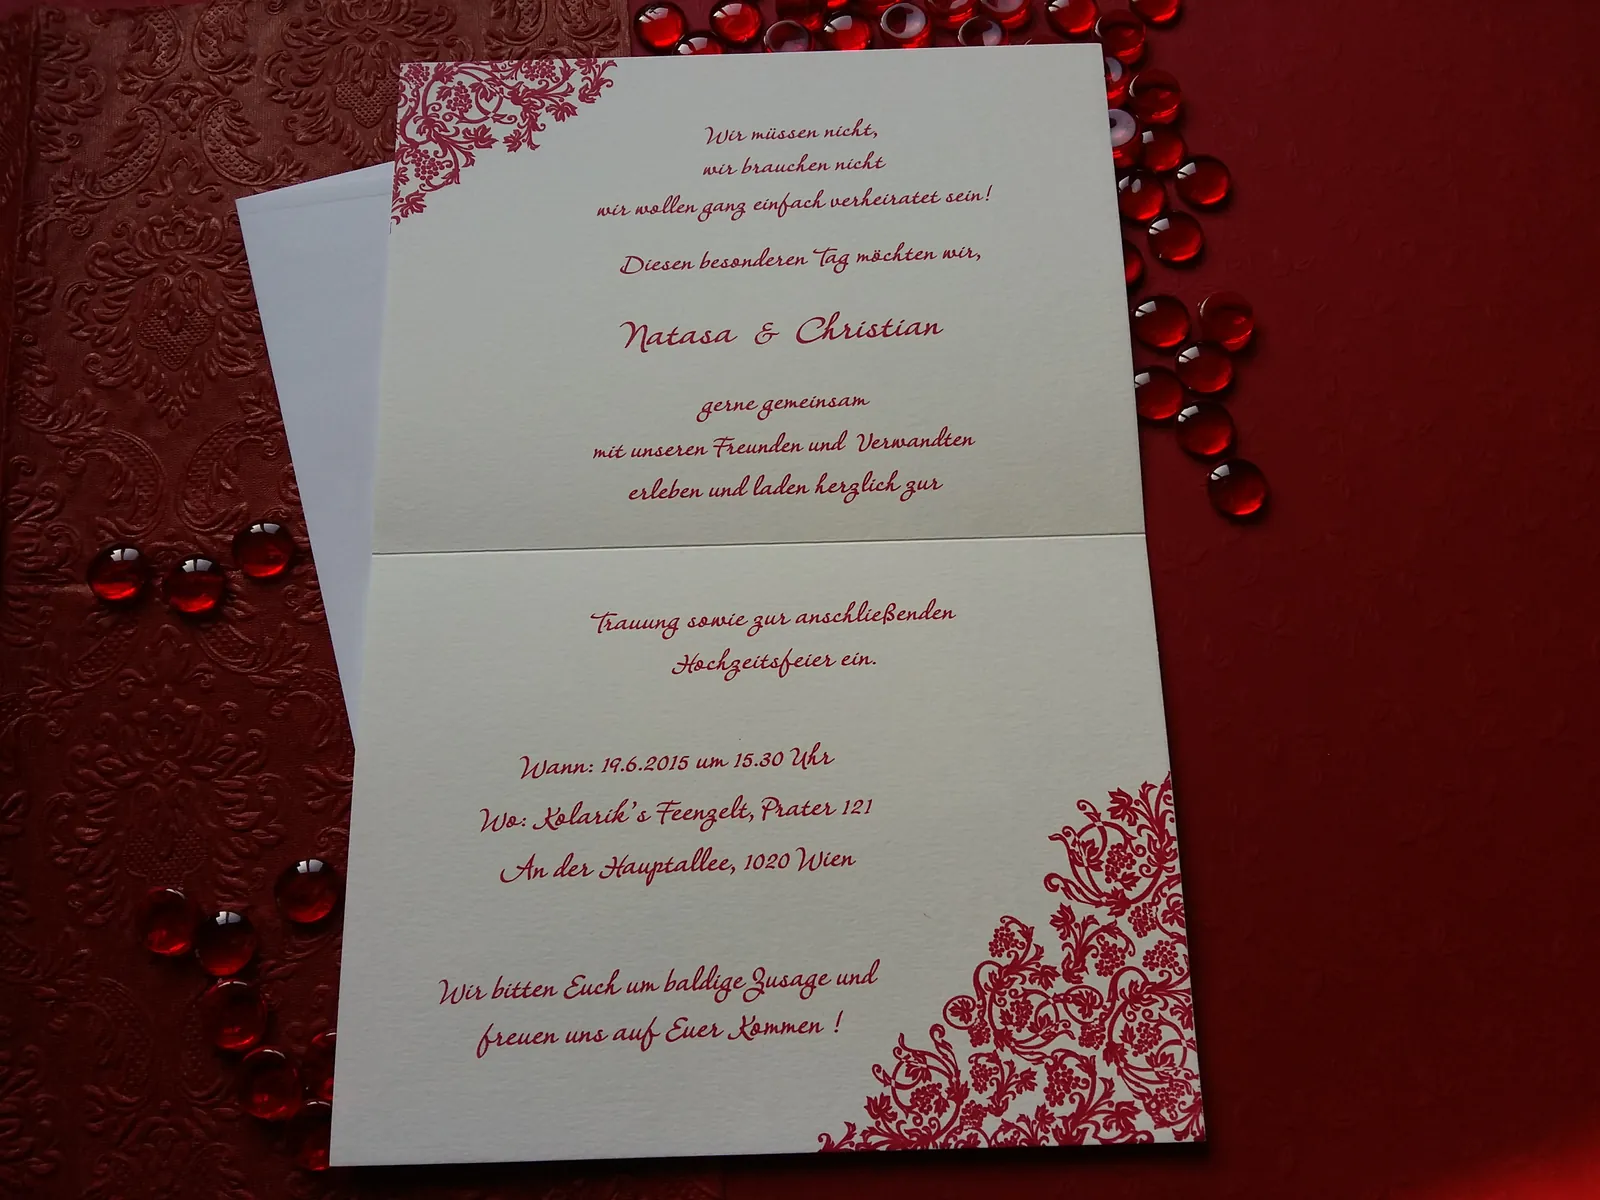 Wir müssen nicht,
wir brauchen nicht
wir wollen ganz einfach verheiratet sein!
Diesen besonderen Tag möchten wir,
Natasa & Christian
gerne gemeinsam
mit unseren Freunden und Verwandten
erleben und laden herzlich zur
Trauung sowie zur anschließenden
Hochzeitsfeier ein.
Wann: 19.6.2015 um 15.30 Uhr
Wo: Kolarik's Feenzelt, Prater 121
An der Hauptallee, 1020 Wien
Wir bitten Euch um baldige Zusage und
freuen uns auf Euer Kommen !